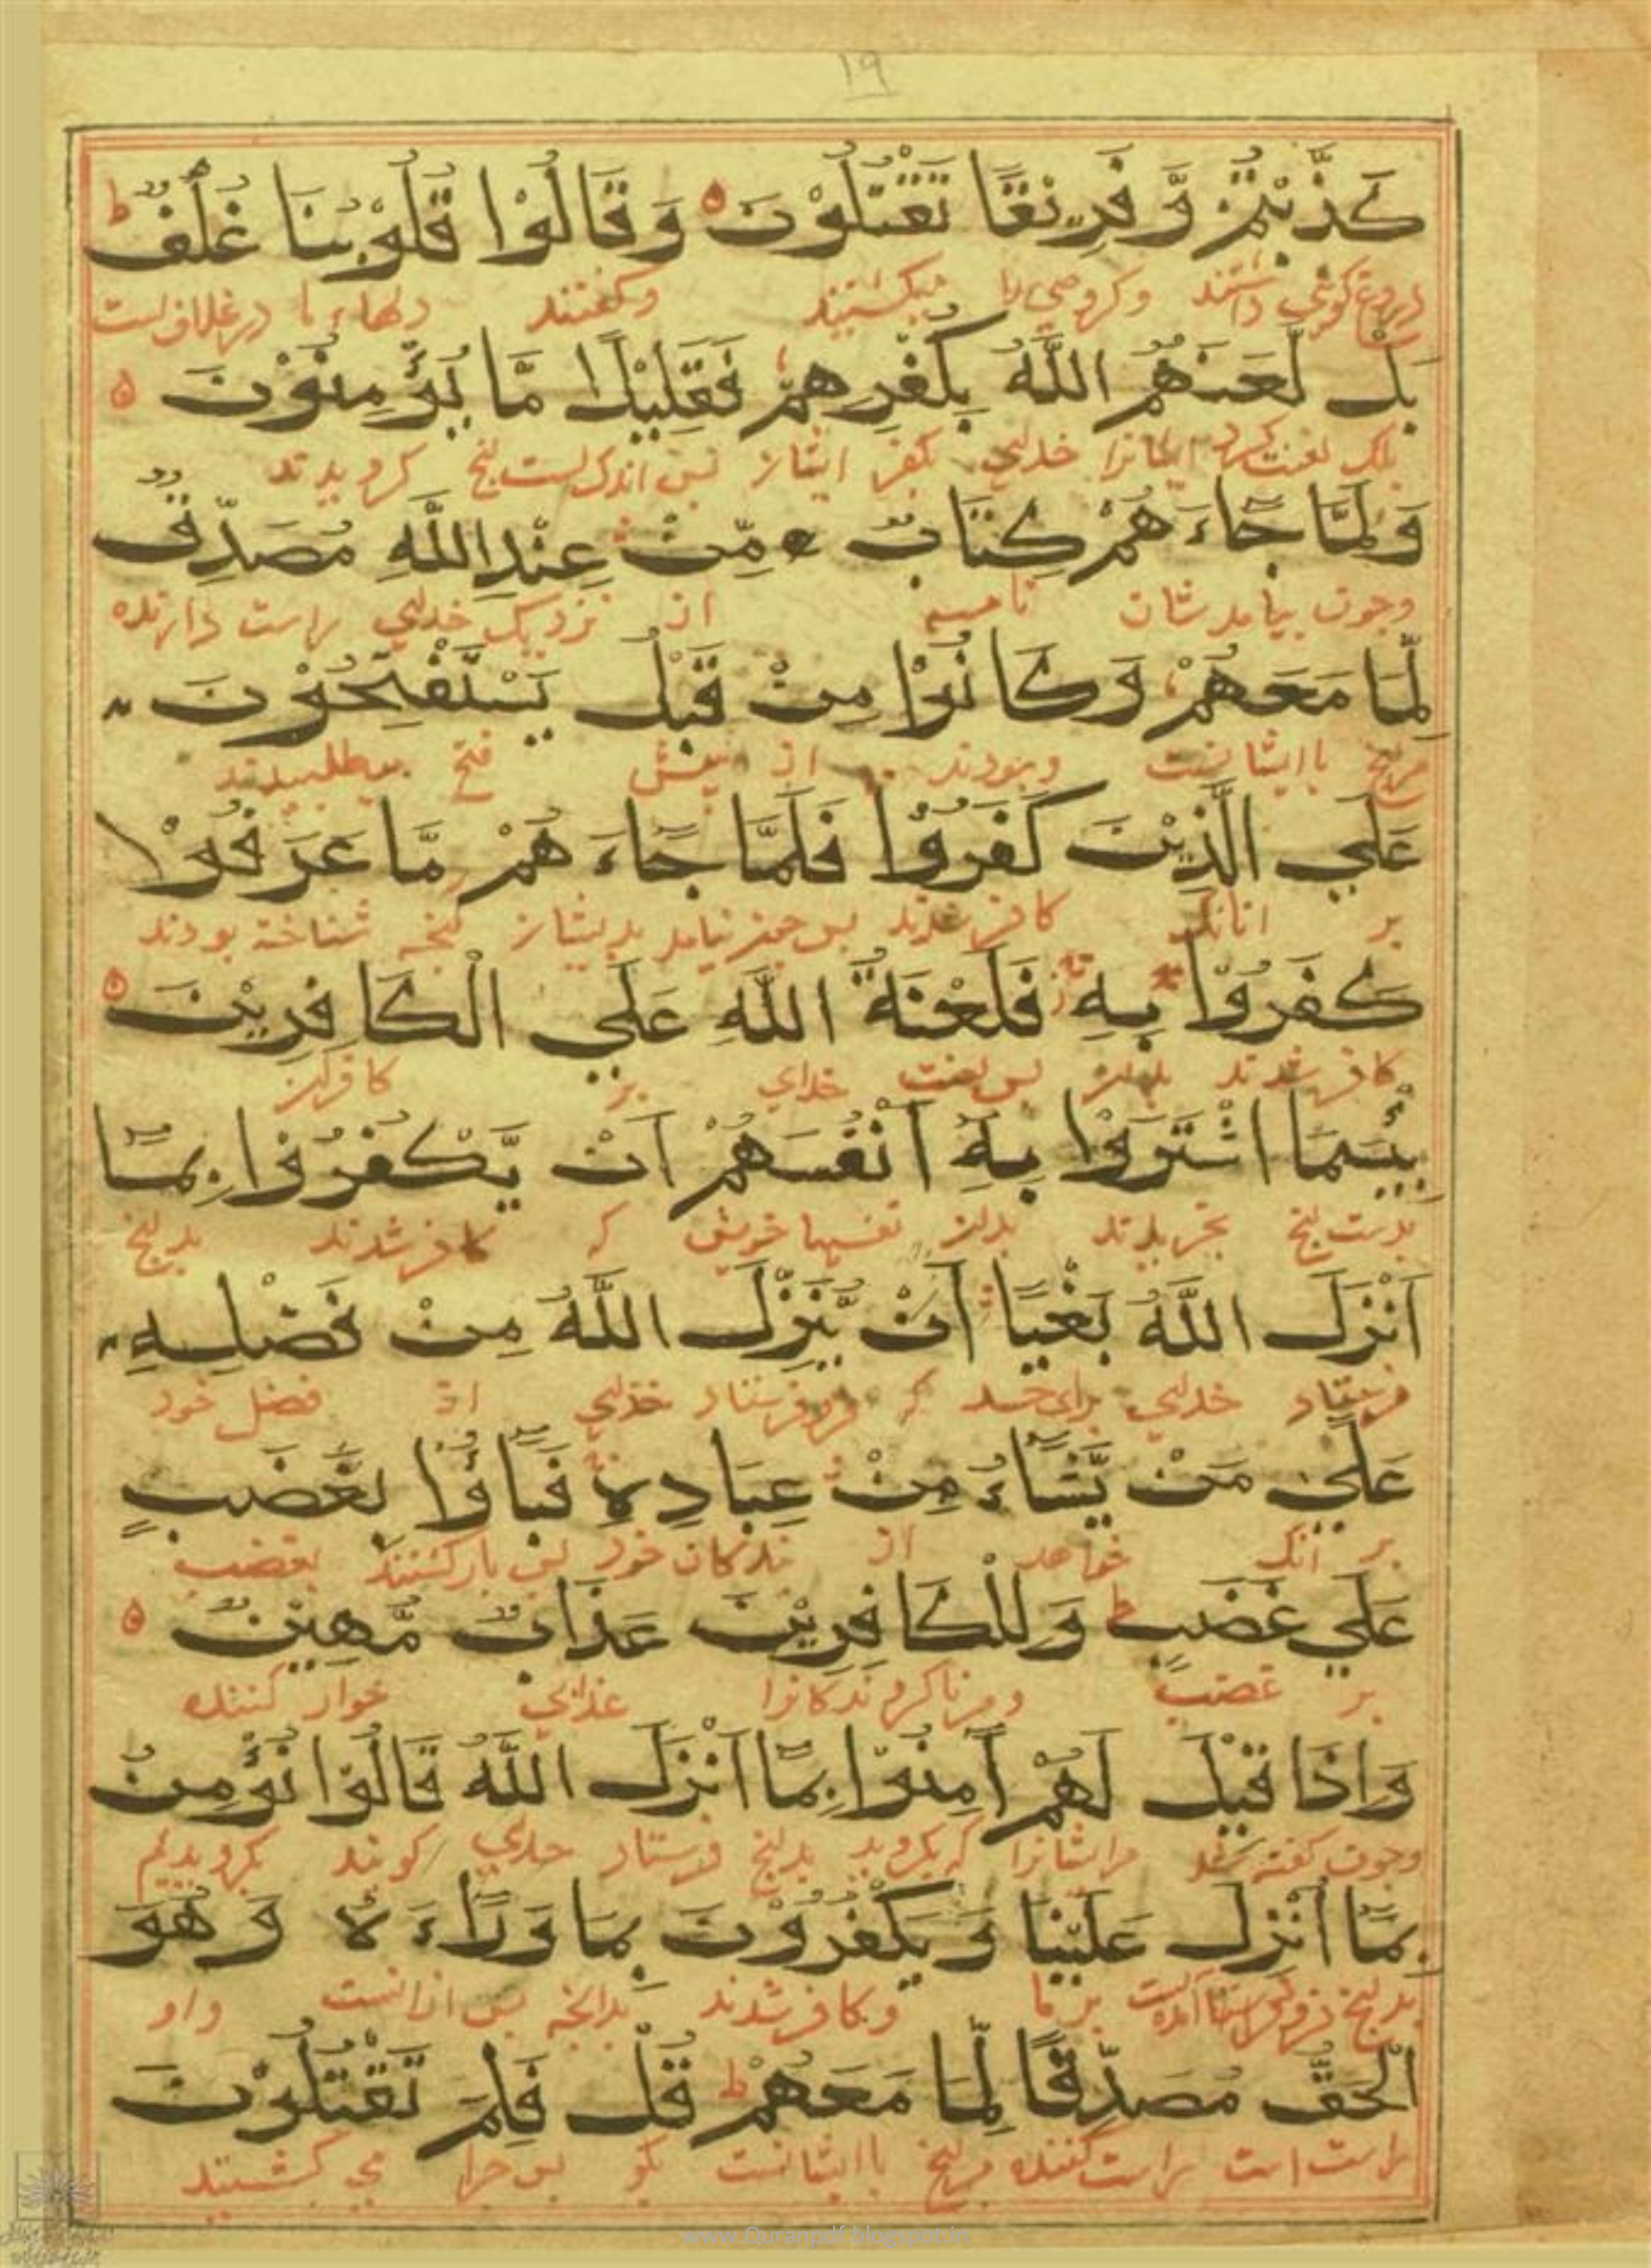 ١٩
كَذَّبْتُمْ وَّ فَرِيْقًا تَقْتُلُوْنَ ۝ وَ قَالُوْا قُلُوْبُنَا غُلْفٌ ؕ
دروغ گوی داشتند وگروهی را میکشتید وگفتند دلهاء ما در غلاف است
بَلْ لَّعَنَهُمُ اللّٰهُ بِكُفْرِهِمْ فَقَلِيْلًا مَّا يُؤْمِنُوْنَ ۝
بلکه لعنت کرد ایشانرا خدای بکفر ایشان پس اندک است گرویدند
وَلَمَّا جَآءَهُمْ كِتَابٌ مِّنْ عِنْدِ اللّٰهِ مُصَدِّقٌ
وچون بیامدشان نامه از نزدیک خدای راست دارنده
لِّمَا مَعَهُمْ وَ كَانُوْا مِنْ قَبْلُ يَسْتَفْتِحُوْنَ
با ایشانست وبودند از پیش فتح میطلبیدند
عَلَي الَّذِيْنَ كَفَرُوْا فَلَمَّا جَآءَ هُمْ مَّا عَرَفُوْا
بر انانک کافر شدند پس بیامد بدیشان شناخته بودند
كَفَرُوْا بِهٖ فَلَعْنَةُ اللّٰهِ عَلَي الْكَافِرِيْنَ ۝
کافر شدند بدان پس لعنت خدای بر کافران
بِئْسَمَا اشْتَرَوْا بِهٖ اَنْفُسَهُمْ اَنْ يَّكْفُرُوْا بِمَآ
بدست بخریدند بدان نفسها خویش که کافر شدند بدانچ
اَنْزَلَ اللّٰهُ بَغْيًا اَنْ يُّنَزِّلَ اللّٰهُ مِنْ فَضْلِهٖ
فرستاد خدای برای حسد که فرو فرستاد خدای از فضل خود
عَلٰي مَنْ يَّشَآءُ مِنْ عِبَادِهٖ فَبَآؤُا بِغَضَبٍ
بر انک خواهد از بندکان خود پس بازکشتند بغضب
عَلَي غَضَبٍ ؕ وَ لِلْكَافِرِيْنَ عَذَابٌ مُّهِيْنٌ ۝
بر غضب عذابی خوار کننده
وَ اِذَا قِيْلَ لَهُمْ اٰمِنُوْا بِمَآ اَنْزَلَ اللّٰهُ قَالُوْا نُؤْمِنُ
وچون کفته شد مرایشانرا که بکروید بدانچ فرستاد خدای کویند بکرویدیم
بِمَآ اُنْزِلَ عَلَيْنَا وَ يَكْفُرُوْنَ بِمَا وَرَآءَ هٗ وَ هُوَ
بدانچ بر ما وکافر شدند بدانچه پس از انست واو
الْحَقُّ مُصَدِّقًا لِّمَا مَعَهُمْ ؕ قُلْ فَلِمَ تَقْتُلُوْنَ
راست است راست کننده با ایشانست بکو پس چرا می کشتید
www.Quranpdf.blogspot.in